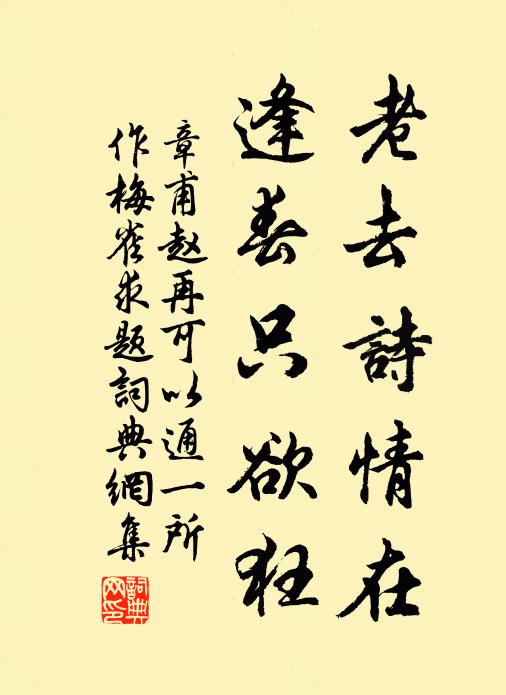 老去詩情在
逢春只欲狂
章甫赵再可以通一所
作梅雀求题詞典網集
詞典网印